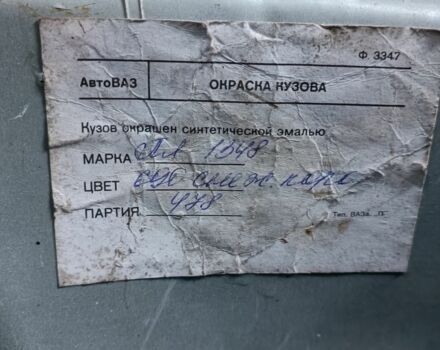 Ф 3347
АвтоВАЗ ОКРАСКА КУЗОВА
Кузов окрашен синтетической эмалью
МАРКА 1348
ЦВЕТ
ПАРТИЯ 478
Тип. ВАЗа